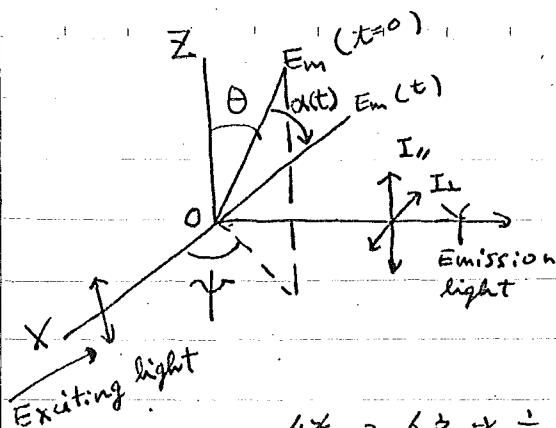 Z
Em (t=0)
θ
α(t)
Em(t)
I∥
I⊥
O
Emission
light
ψ
X
Exciting light